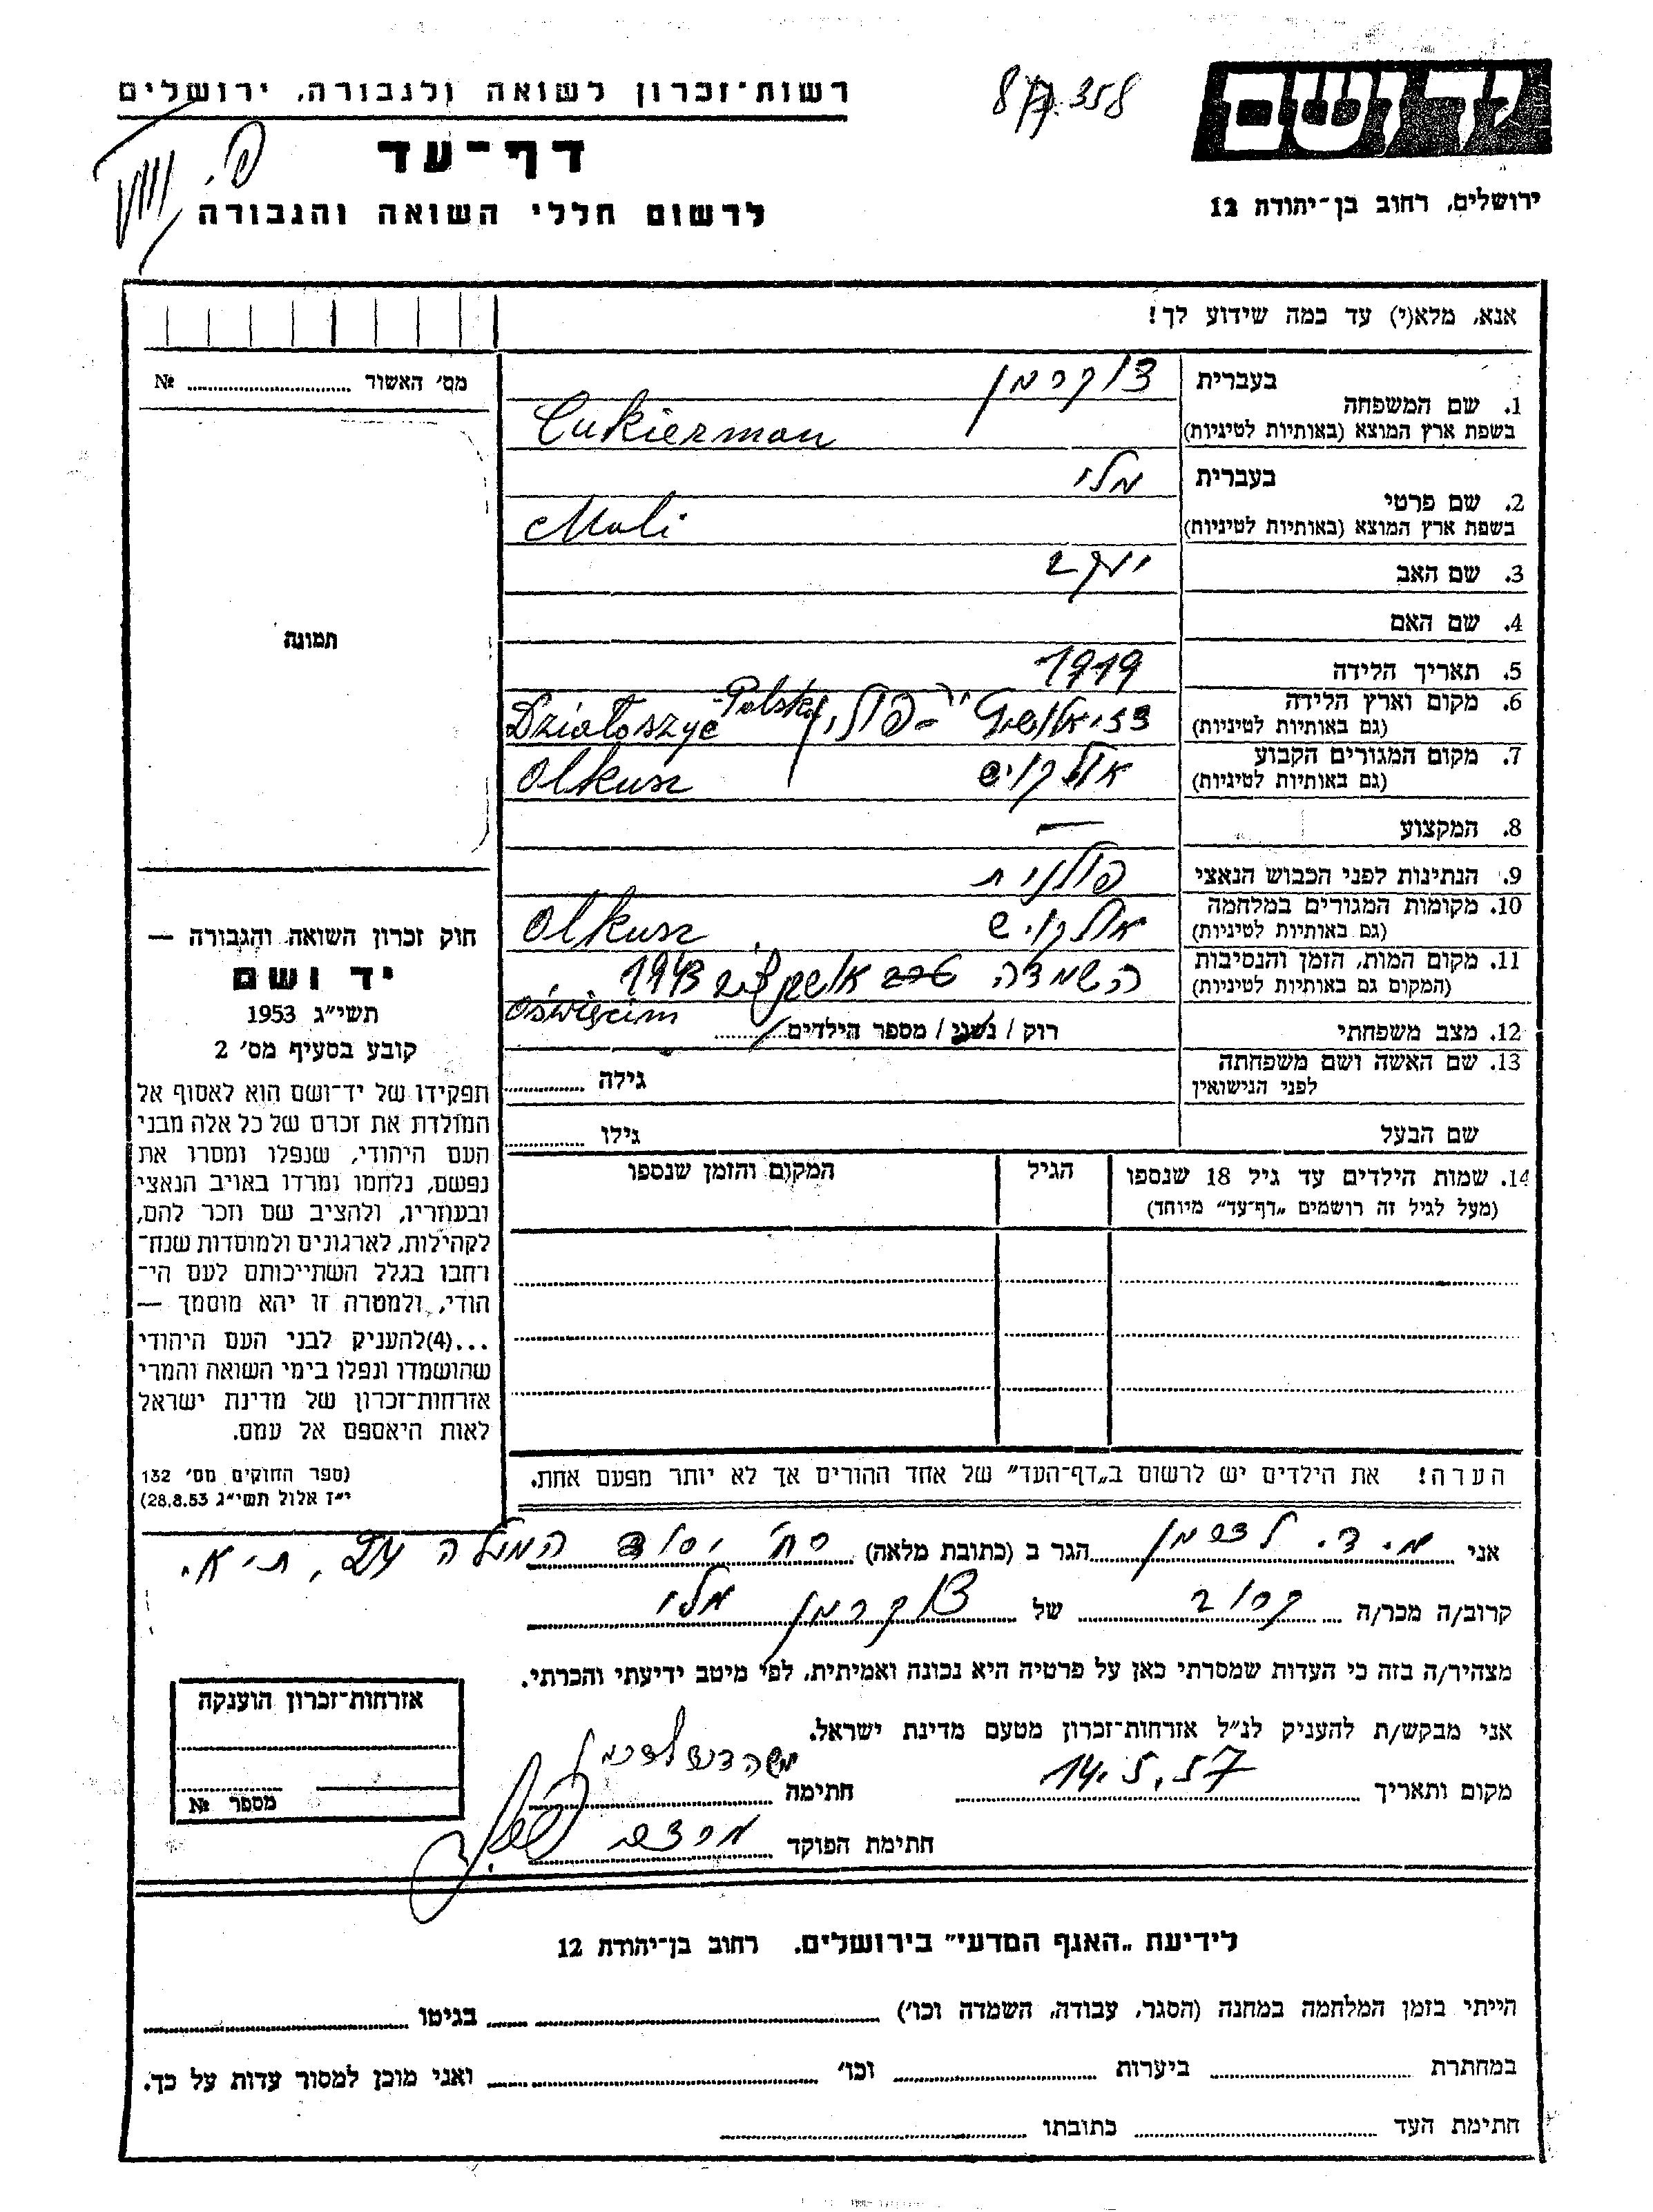 רשות־זכרון לשואה ולגבורה, ירושלים
דף־עד
לרשום חללי השואה והגבורה
ידושם
ירושלים, רחוב בן־יהודה 12
אנא, מלא(י) עד כמה שידוע לך!
מס׳ האשור № ........
בעברית צוקרמן
1. שם המשפחה
בשפת ארץ המוצא (באותיות לטיניות) Cukierman
בעברית מלי
2. שם פרטי
בשפת ארץ המוצא (באותיות לטיניות) Mali
3. שם האב יעקב
4. שם האם
5. תאריך הלידה 1919
6. מקום וארץ הלידה
(גם באותיות לטיניות) פולין Działoszyce Polska
7. מקום המגורים הקבוע
(גם באותיות לטיניות) אולקוש Olkusz
8. המקצוע —
9. הנתינות לפני הכבוש הנאצי פולנית
10. מקומות המגורים במלחמה
(גם באותיות לטיניות) אולקוש Olkusz
11. מקום המות, הזמן והנסיבות
(המקום גם באותיות לטיניות) השמדה 1943 Oświęcim
12. מצב משפחתי רוק / נשוי / מספר הילדים........
13. שם האשה ושם משפחתה
לפני הנישואין גילה ........
שם הבעל גילו ........
14. שמות הילדים עד גיל 18 שנספו הגיל המקום והזמן שנספו
(מעל לגיל זה רושמים „דף־עד” מיוחד)
הערה! את הילדים יש לרשום ב„דף־העד” של אחד ההורים אך לא יותר מפעם אחת.
תמונה
חוק זכרון השואה והגבורה —
יד ושם
תשי״ג 1953
קובע בסעיף מס׳ 2
תפקידו של יד־ושם הוא לאסוף אל
המולדת את זכרם של כל אלה מבני
העם היהודי, שנפלו ומסרו את
נפשם, נלחמו ומרדו באויב הנאצי
ובעוזריו, ולהציב שם וזכר להם,
לקהילות, לארגונים ולמוסדות שנח־
רחבו בגלל השתייכותם לעם הי־
הודי, ולמטרה זו יהא מוסמך —
...(4)להעניק לבני העם היהודי
שהושמדו ונפלו בימי השואה והמרי
אזרחות־זכרון של מדינת ישראל
לאות היאספם אל עמם.
(ספר החוקים מס׳ 132
י״ז אלול תשי״ג 28.8.53)
אני מ. ד. הגר ב (כתובת מלאה) רח׳ יסוד המעלה ת״א.
קרוב/ה מכר/ה קרוב של צוקרמן מלי
מצהיר/ה בזה כי העדות שמסרתי כאן על פרטיה היא נכונה ואמיתית, לפי מיטב ידיעתי והכרתי.
אני מבקש/ת להעניק לנ״ל אזרחות־זכרון מטעם מדינת ישראל.
מקום ותאריך 14.5.57 חתימה
חתימת הפוקד
אזרחות־זכרון הוענקה
מספר №
לידיעת „האגף המדעי” בירושלים, רחוב בן־יהודה 12
הייתי בזמן המלחמה במחנה (הסגר, עבודה, השמדה וכו׳) ........ בגיטו ........
במחתרת ........ ביערות ........ וכו׳ ........ ואני מוכן למסור עדות על כך.
חתימת העד ........ כתובתו ........